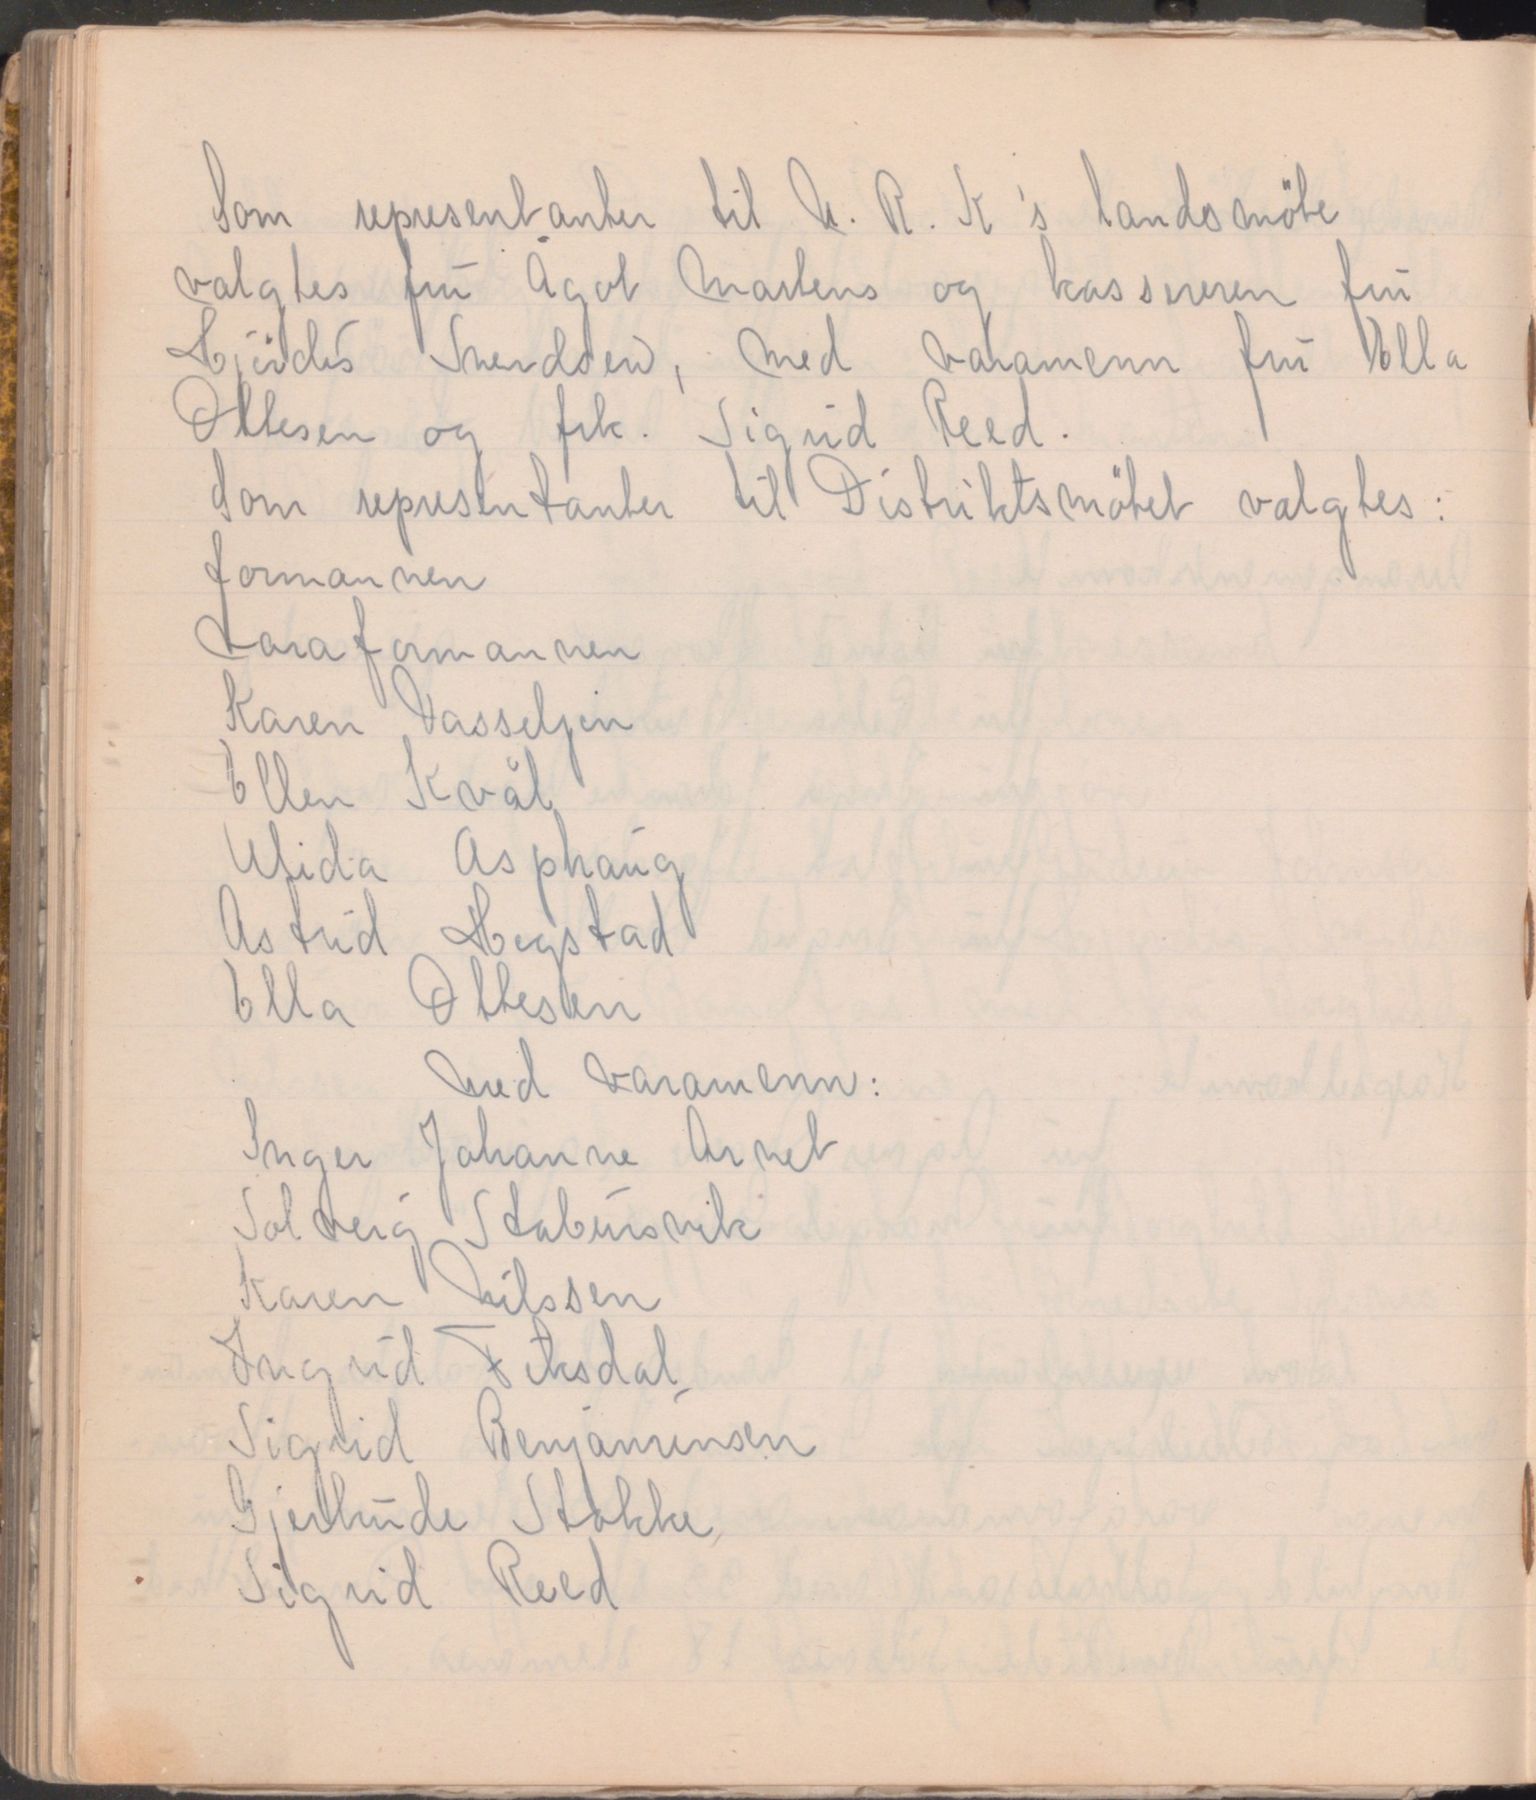 Som representanter til N. R. K's landsmöte
valgtes frü Ågot Martens og kassereren frü
Hjördis Svendsen, med varamenn frü Ella
Ottesen og frk. Sigrid Reed.
Som representanter til Distriktsmötet valgtes:
formannen
varaformannen
Karen Vasseljen
Ellen Kvål
Ulida Asphaüg
Astrid Hegstad
Ella Ottesen
med varamenn:
Inger Johanne Arnet
Solveig Stabürsvik
Karen Nilssen
Ingrid Fiksdal
Sigrid Benjaminsen
Gjertrüde Stokke
Sigrid Reed